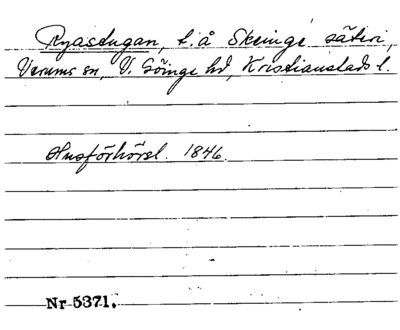 Ryastugan, t. å Skeinge säteri,
Verums sn, V. Göinge hd, Kristianstads l.
Husförhörsl. 1846.
Nr 5371.